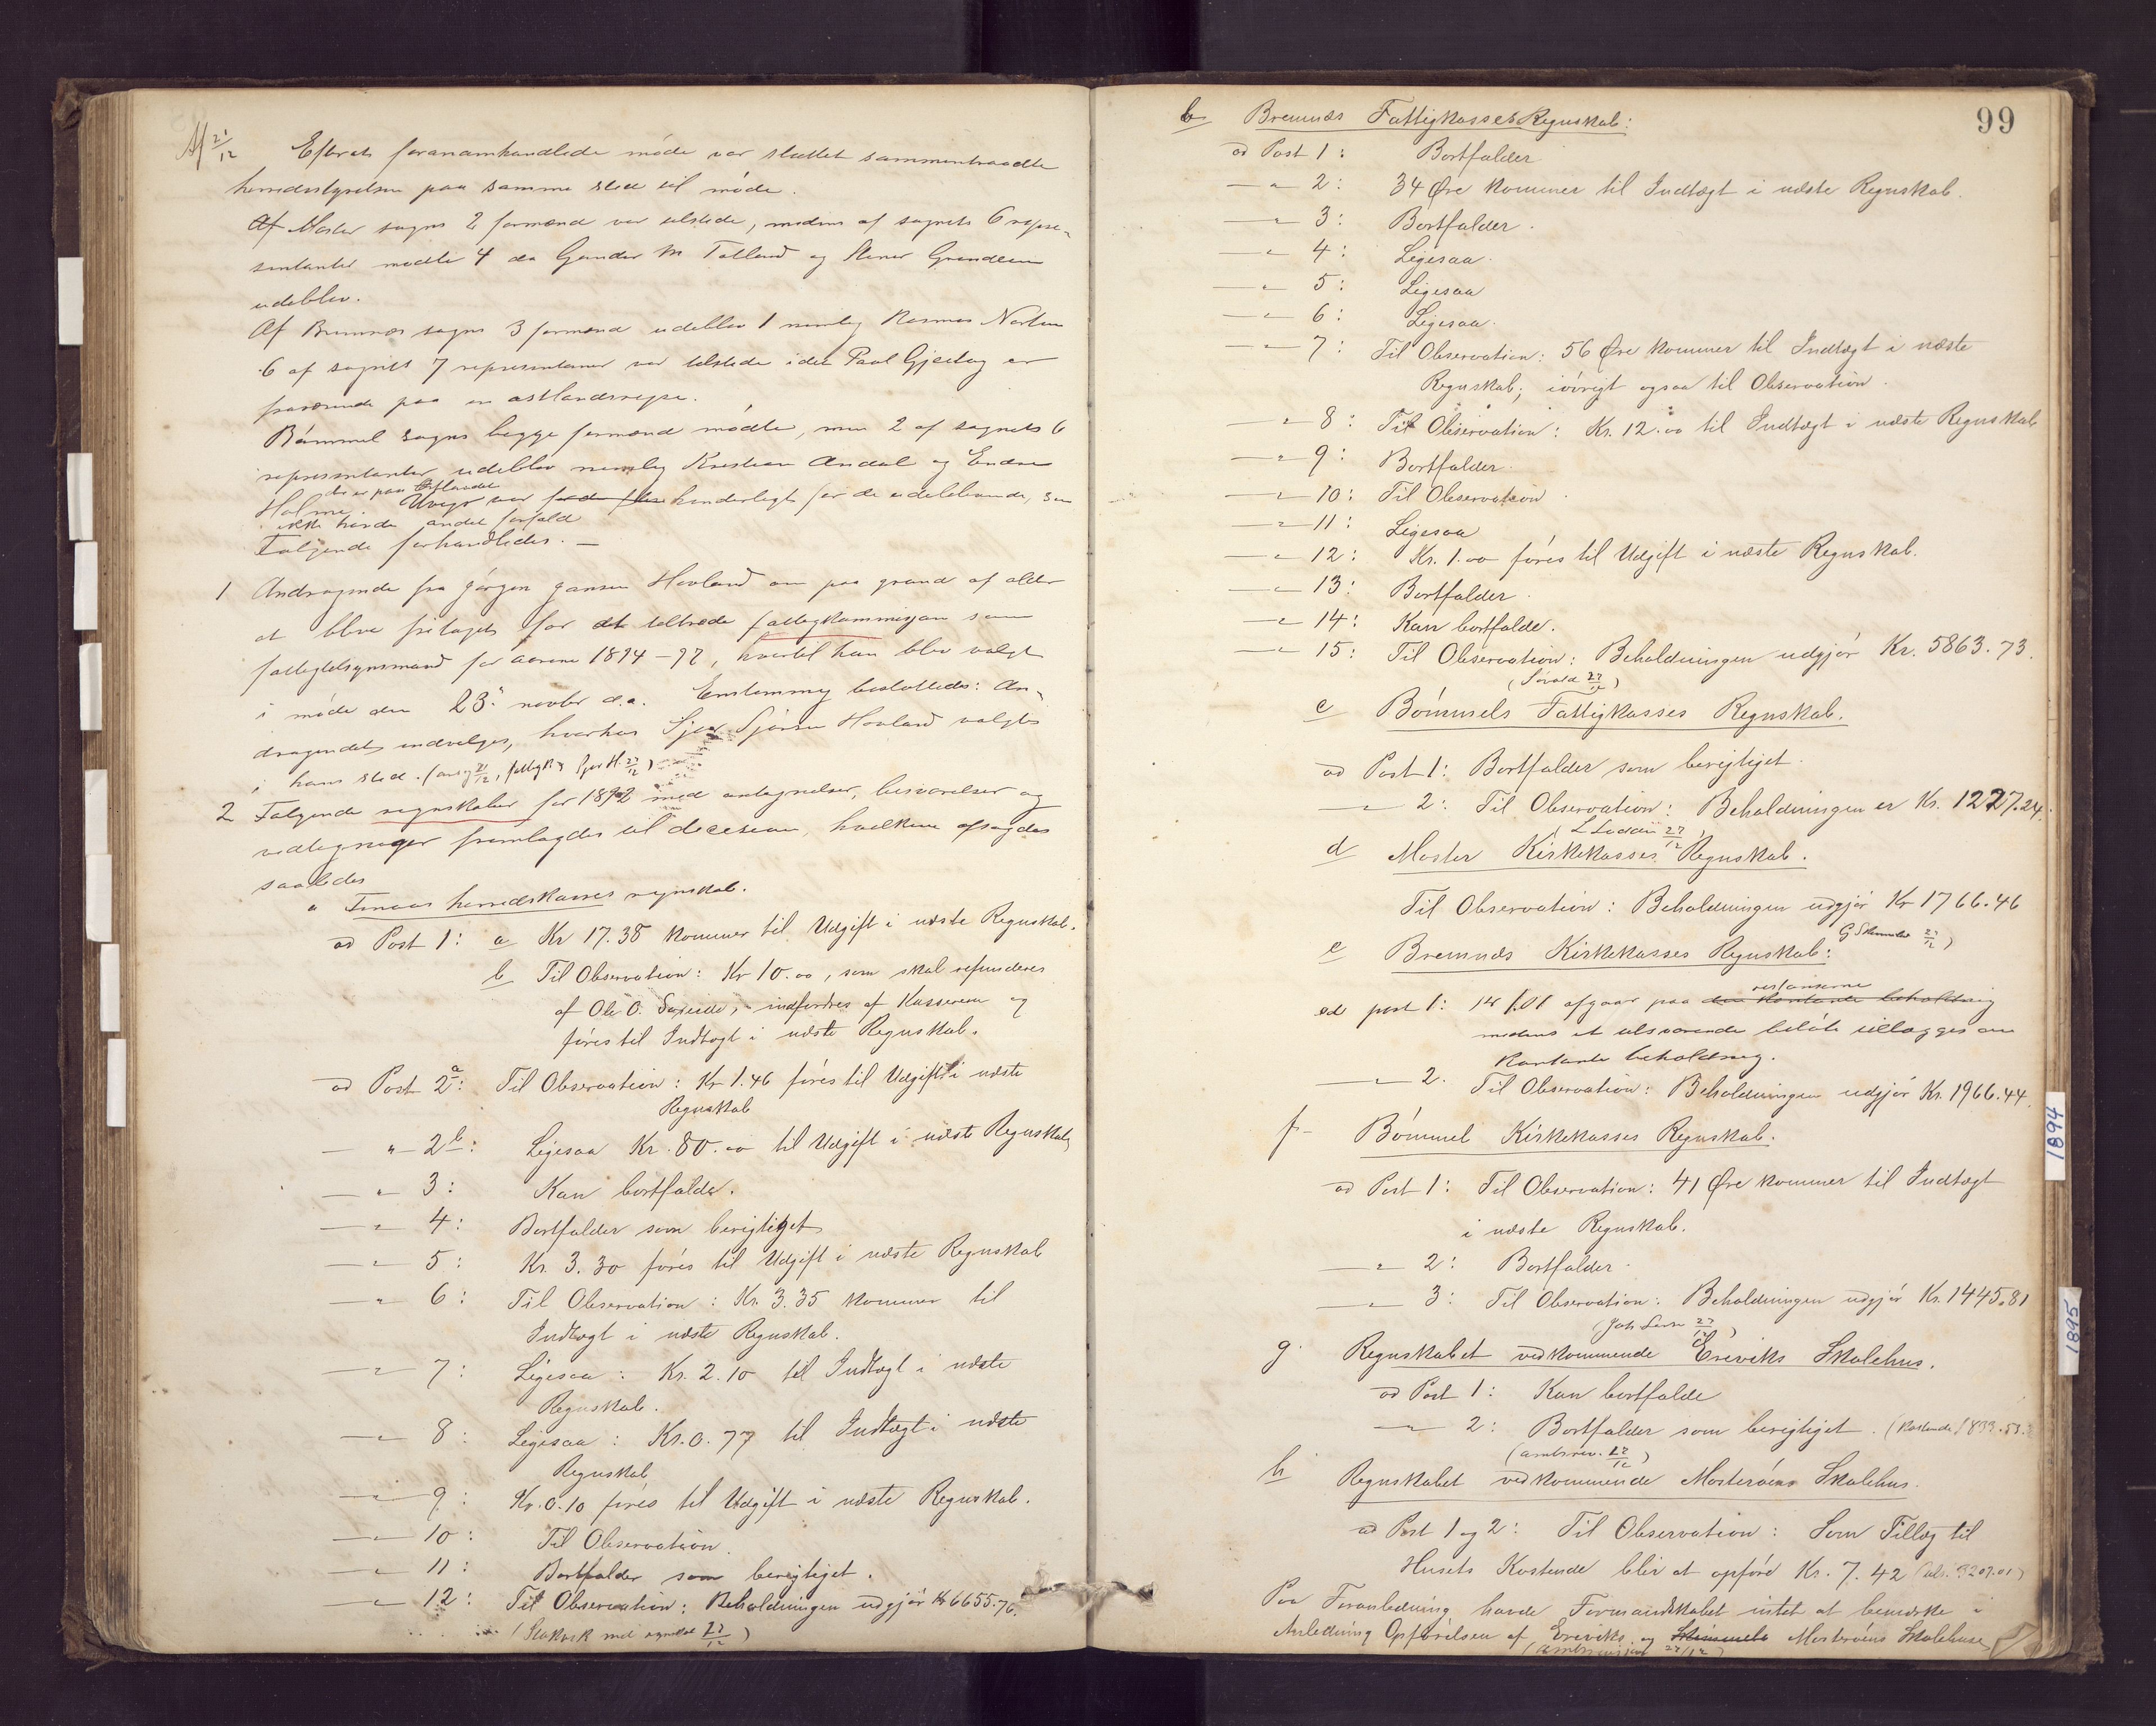 Af 21/12
Efterat forannamhandlede møde var sluttet sammentraadte
herredsstyrelsen paa samme sted til møde.
Af Moster sogns 2 formænd var tilstede, medens af sognets 6 repræ-
sentanter mødte 4 da Gunder M Totland og Stener Grindeim
udeblev.
Af Bremnæs sogns 3 formænd udeblev 1 nemlig Rasmus Nortun
6 af sognets 7 representanter var tilstede idet Paul Gjerlag er
fraværende paa en østlandsreise.
Bømmel sogns begge formænd mødte, men 2 af sognets 6
representanter udeblev nemlig Kristian Andal og Endre
der er paa Østlandet
Holme. Uveir var hinderligt for de udeblevende, som
ikke havde andet forfald
Følgende forhandledes. —
1 Andragende fra Jørgen Jansen Hovland om paa grund af alder
at blive fritaget for at tiltræde fattigkommisjon som
fattigtilsynsmand for aarene 1894-97, hvortil han blev valgt
i møde den 23de novbr d.a. Enstemmig besluttedes: An-
dragendet indvilges, hvorhos Sjur Sjursen Hovland valgtes
i hans sted.
2 Følgende regnskaber for 1892 med antegnelser, besvarelser og
vedtegninger fremlagdes til decision, hvilken afsagdes
saaledes
a Finaas herredskasses regnskab.
ad Post 1: a Kr 17.38 kommer til Udgift i næste Regnskab.
b Til Observation: Kr 10.00, som skal refunderes
af Ole O. Søreide, indfordres af Kassereren og
føres til Indtægt i næste Regnskab.
ad Post 2a: Til Observation: Kr 1.46 føres til Udgift i næste
Regnskab
— " — 2b: Ligesaa Kr. 80.00 til Udgift i næste Regnskab
— " — 3: Kan bortfalde.
— " — 4: Bortfalder som berigtiget
— " — 5: Kr. 3.30 føres til Udgift i næste Regnskab
— " — 6: Til Observation: Kr. 3.35 kommer til
Indtægt i næste Regnskab.
— " — 7: Ligesaa: Kr. 2.10 til Indtægt i næste
Regnskab.
— " — 8: Ligesaa: Kr. 0.77 til Indtægt i næste
Regnskab
— " — 9: Kr. 0.10 føres til Udgift i næste Regnskab.
— " — 10: Til Observation.
— " — 11: Bortfalder som berigtiget.
— " — 12: Til Observation: Beholdningen udgjør Kr 6655.76.
99
b Bremnæs Fattigkasses Regnskab:
ad Post 1: Bortfalder
— " — 2: 34 Øre kommer til Indtægt i næste Regnskab.
— " — 3: Bortfalder.
— " — 4: Ligesaa.
— " — 5: Ligesaa
— " — 6: Ligesaa.
— " — 7: Til Observation: 56 Øre kommer til Indtægt i næste
Regnskab; iøvrigt ogsaa til Observation.
— " — 8: Til Observation: Kr. 12.00 til Indtægt i næste Regnskab
— " — 9: Bortfalder.
— " — 10: Til Observation.
— " — 11: Ligesaa
— " — 12: Kr. 1.00 føres til Udgift i næste Regnskab.
— " — 13: Bortfalder.
— " — 14: Kan bortfalde.
— " — 15: Til Observation: Beholdningen udgjør Kr. 5863.73.
c Bømmels Fattigkasses Regnskab.
ad Post 1: Bortfalder som berigtiget.
— " — 2: Til Observation: Beholdningen er Kr. 1227.24.
d Moster Kirkekasses Regnskab.
Til Observation: Beholdningen udgjør Kr 1766.46
e Bremnæs Kirkekasses Regnskab:
restanserne
ad post 1: Kr 1.01 afgaar paa den kontante beholdning
medens et tilsvarende beløb tillægges den
Kontante beholdning.
— " — 2. Til Observation: Beholdningen udgjør Kr. 1966.44.
f Bømmel Kirkekasses Regnskab.
ad Post 1: Til Observation: 41 Øre kommer til Indtægt
i næste Regnskab.
— " — 2: Bortfalder.
— " — 3: Til Observation: Beholdningen udgjør Kr. 1445.81
g. Regnskabet vedkommende Ereviks Skolehus.
ad Post 1: Kan bortfalde
— " — 2: Bortfalder som berigtiget.
h Regnskabet vedkommende Mosterøens Skolehus.
ad Post 1 og 2: Til Observation: Som Tillæg til
Husets Kostende blir at opføre Kr. 7.42
Paa Foranledning havde Formandskabet intet at bemærke i
Anledning Opførelsen af Ereviks og Mosterøens Skolehuse
1894
1895